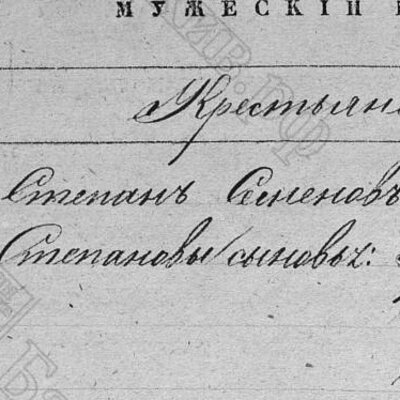 МУЖЕСКІЙ
Крестьяне
Степанъ Семеновъ
Степановы сыновья: